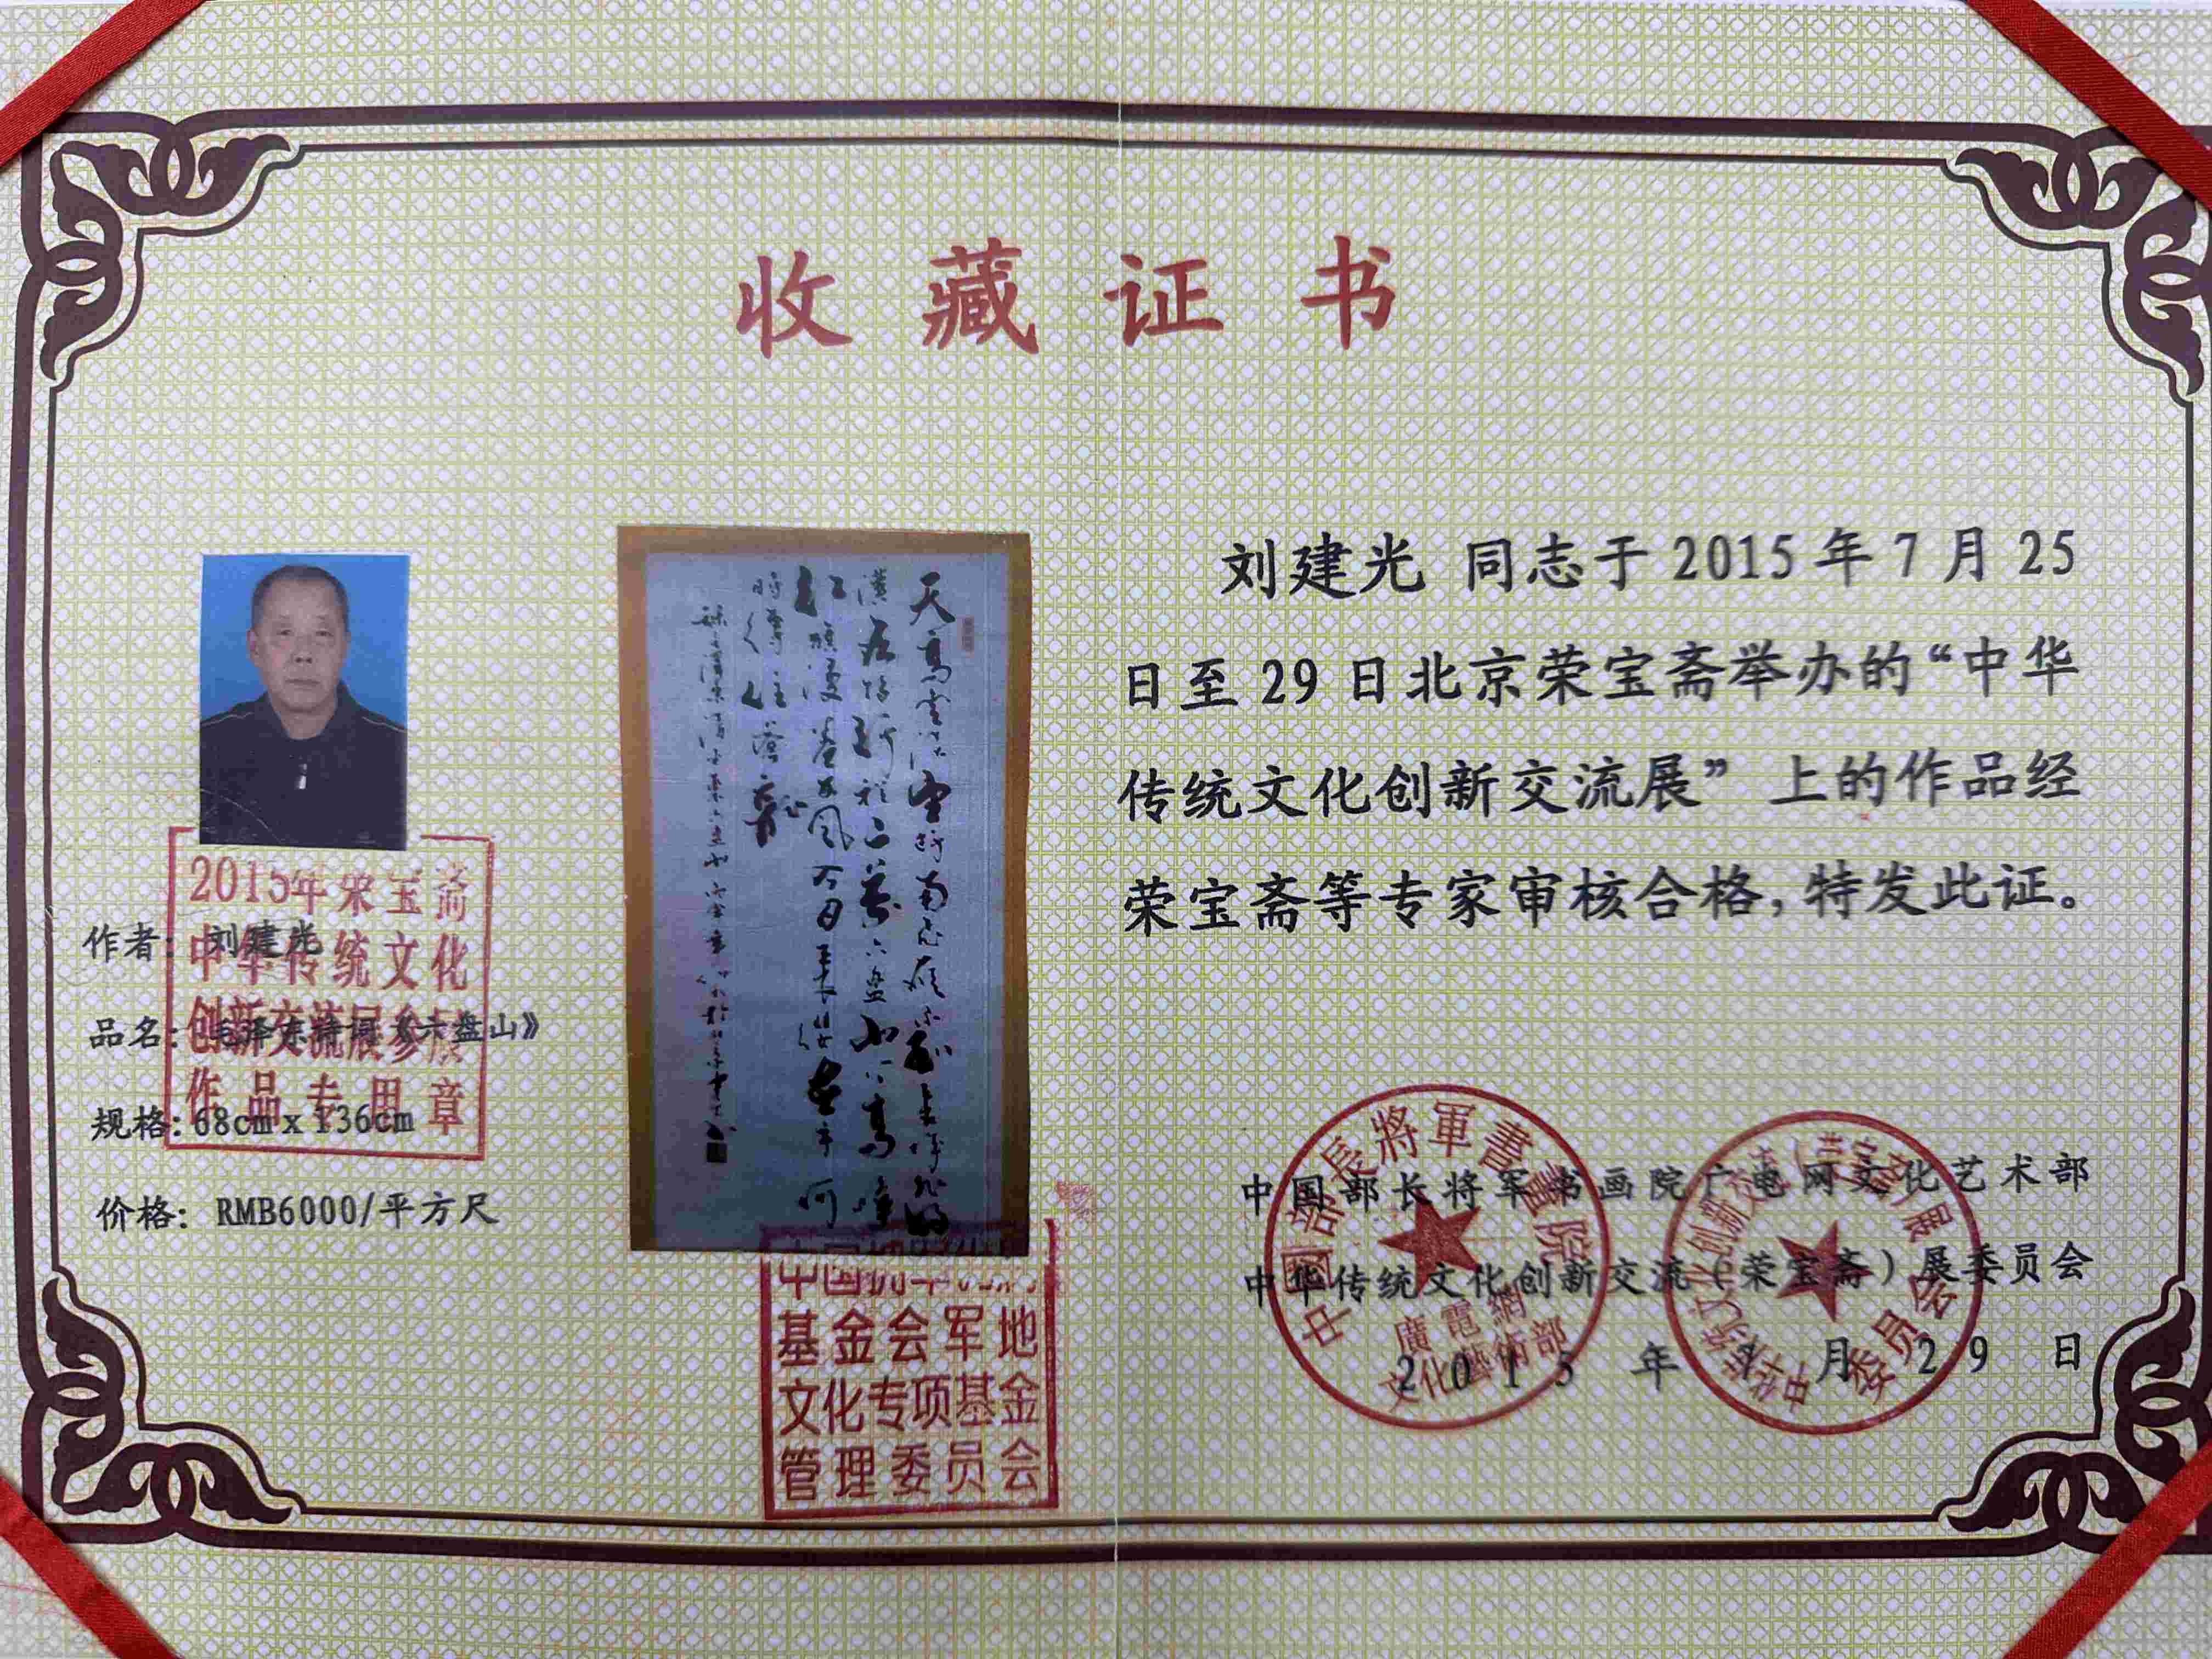 收藏证书
刘建光 同志于 2015 年 7 月 25
日至 29 日北京荣宝斋举办的“中华
传统文化创新交流展” 上的作品经
荣宝斋等专家审核合格,特发此证。
作者: 刘建光
品名:《毛泽东诗词《六盘山》
规格: 68cm x 136cm
价格: RMB6000/平方尺
2015年荣宝斋
中华传统文化
创新交流展参展
作品专用章
天高云淡望断南飞雁不到长城非好
汉屈指行程二万六盘山上高峰
红旗漫卷西风今日长缨在手何
时缚住苍龙
中国
基金会军地
文化专项基金
管理委员会
中国部长将军书画院广电网文化艺术部
中华传统文化创新交流(荣宝斋)展委员会
2015 年 月 29 日
中國部長將軍書畫院
廣電網
文化藝術部
中华传统文化创新交流(荣宝斋)展委员会